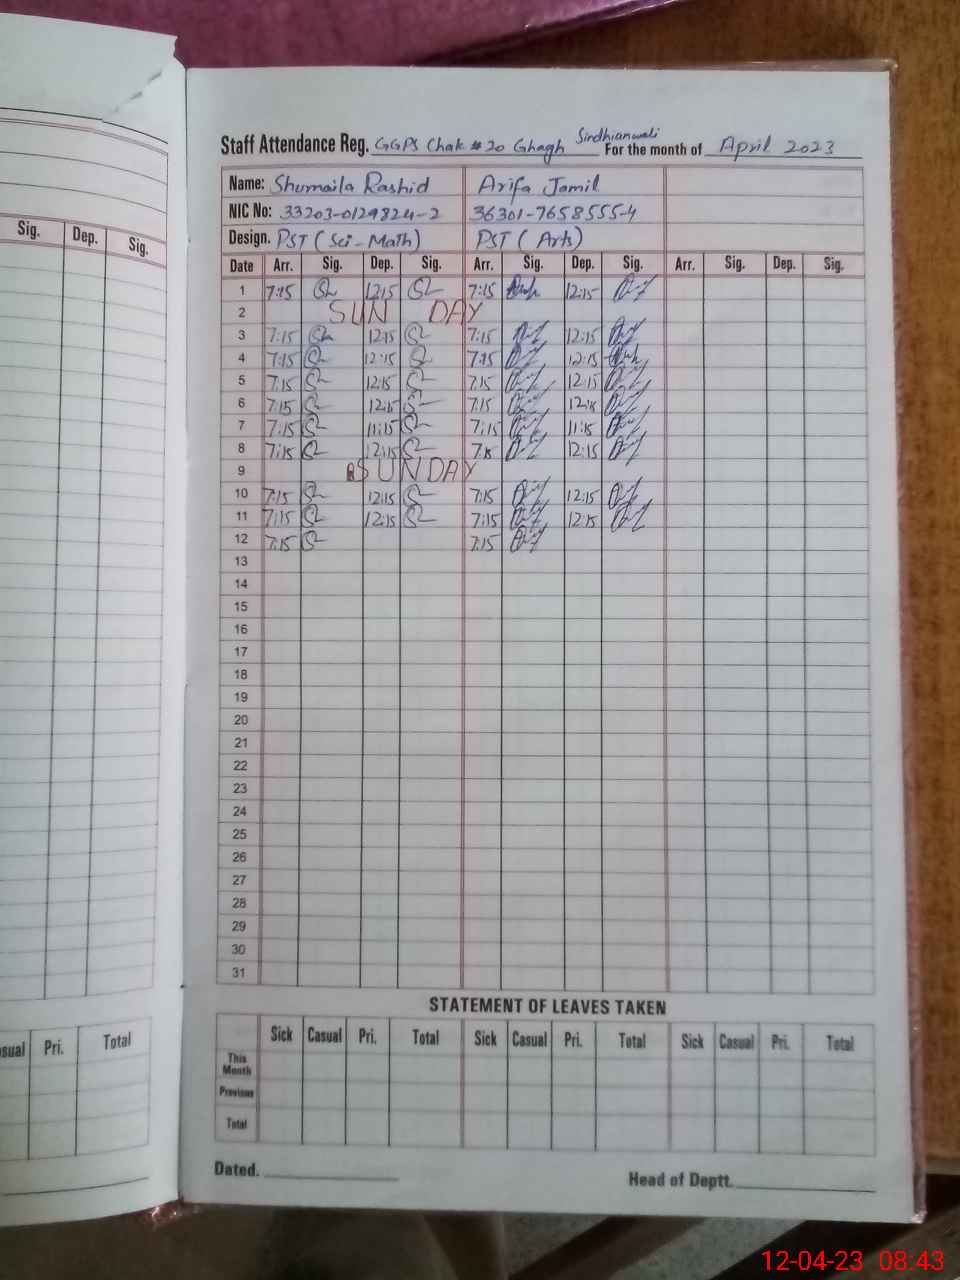 Staff Attendance Reg. GGPS Chak # 20 Ghagh Sindhianwali For the month of April 2023
Name: Shumaila Rashid Arifa Jamil
NIC No: 33203-0129824-2 36301-7658555-4
Design. PST (Sci-Math) PST (Arts)
Sig. Dep. Sig.
Date Arr. Sig. Dep. Sig. Arr. Sig. Dep. Sig. Arr. Sig. Dep. Sig.
1 7:15 12:15 7:15 12:15
2 SUN DAY
3 7:15 12:15 7:15 12:15
4 7:15 12:15 7:15 12:15
5 7:15 12:15 7:15 12:15
6 7:15 12:15 7:15 12:15
7 7:15 11:15 7:15 11:15
8 7:15 12:15 7:15 12:15
9 SUNDAY
10 7:15 12:15 7:15 12:15
11 7:15 12:15 7:15 12:15
12 7:15 7:15
13
14
15
16
17
18
19
20
21
22
23
24
25
26
27
28
29
30
31
STATEMENT OF LEAVES TAKEN
sual Pri. Total
Sick Casual Pri. Total Sick Casual Pri. Total Sick Casual Pri. Total
This Month
Previous
Total
Dated. Head of Deptt.
12-04-23 08:43